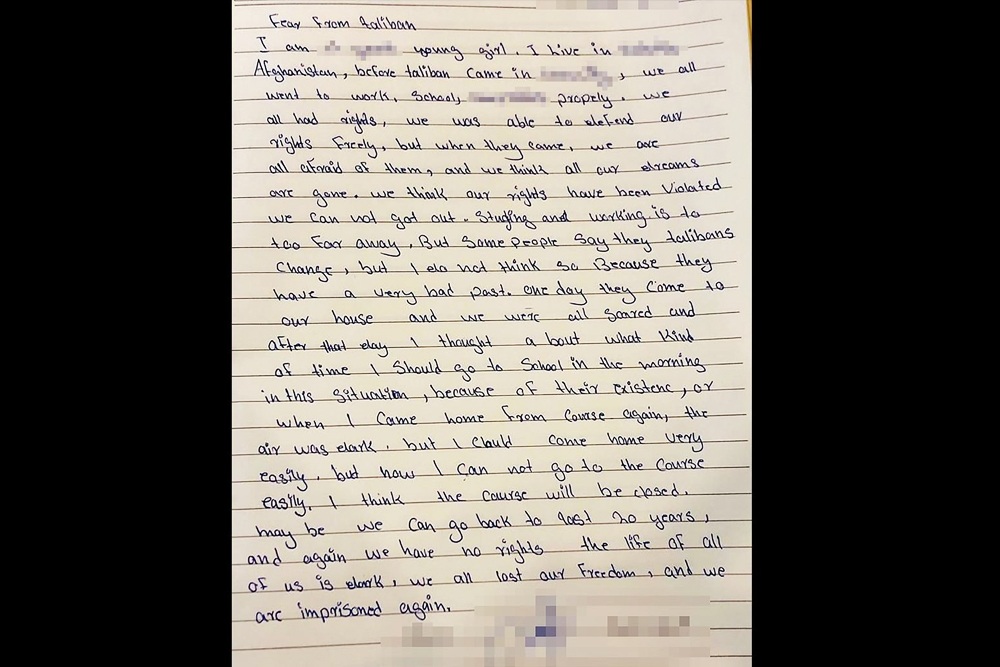 Fear From taliban
I am young girl. I live in
Afghanistan, before taliban came in , we all
went to work, School, propely. we
all had rights, we was able to defend our
rights Freely, but when they came, we are
all afraid of them, and we think all our dreams
are gone. we think our rights have been Violated
we can not got out. Studing and working is to
too Far away. But Some people Say they talibans
Change, but I do not think so Because they
have a very bad past. one day they Come to
our house and we were all Scared and
after that day I thought a bout what Kind
of time I Should go to School in the morning
in this Situation, because of their existenc, or
when I Came home From Course again, the
air was dark. but I Could come home very
easily, but now I Can not go to the Course
easily. I think the Course will be closed.
may be we can go back to last 20 years,
and again we have no rights the life of all
of us is dark, we all lost our Freedom, and we
are imprisoned again.